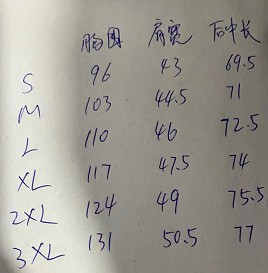 胸围 肩宽 后中长
S 96 43 69.5
M 103 44.5 71
L 110 46 72.5
XL 117 47.5 74
2XL 124 49 75.5
3XL 131 50.5 77